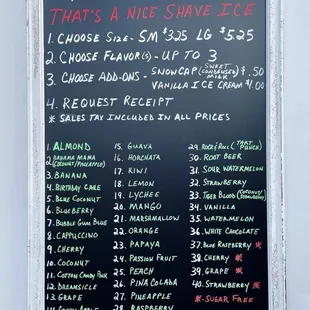 THAT'S A NICE SHAVE ICE
1. CHOOSE SIZE - SM $3.25 LG $5.25
2. CHOOSE FLAVOR(S) - UP TO 3
3. CHOOSE ADD-ONS - SNOWCAP (SWEET CONDENSED MILK) $.50
VANILLA ICE CREAM $1.00
4. REQUEST RECEIPT
* SALES TAX INCLUDED IN ALL PRICES
1. ALMOND
2. BAHAMA MAMA
(COCONUT/PINEAPPLE)
3. BANANA
4. BIRTHDAY CAKE
5. BLUE COCONUT
6. BLUEBERRY
7. BUBBLE GUM BLUE
8. CAPPUCCINO
9. CHERRY
10. COCONUT
11. COTTON CANDY PINK
12. DREAMSICLE
13. GRAPE
15. GUAVA
16. HORCHATA
17. KIWI
18. LEMON
19. LYCHEE
20. MANGO
21. MARSHMALLOW
22. ORANGE
23. PAPAYA
24. PASSION FRUIT
25. PEACH
26. PINA COLADA
27. PINEAPPLE
28. RASPBERRY
29. ROCK & ROLL (THAT PUNCH)
30. ROOT BEER
31. SOUR WATERMELON
32. STRAWBERRY
33. TIGER BLOOD (COCONUT/STRAWBERRY)
34. VANILLA
35. WATERMELON
36. WHITE CHOCOLATE
37. BLUE RASPBERRY *
38. CHERRY *
39. GRAPE *
40. STRAWBERRY *
* - SUGAR FREE